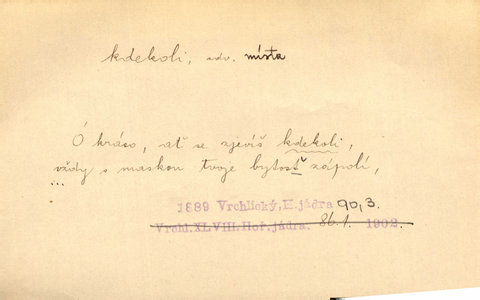 kdekoli, adv. místa
Ó kráso, ať se zjevíš kdekoli,
vždy s maskou tvoje bytosť zápolí,
...
1889 Vrchlický, H. jádra 90,3.
Vrchl. XLVIII. Hoř. jádra. 86.1. 1902.